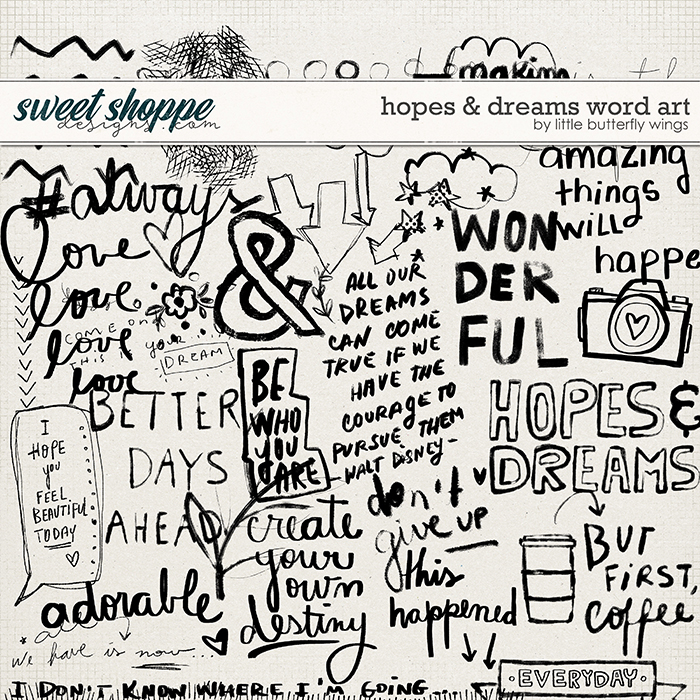 making
sweet shoppe
designs.com
hopes & dreams word art
by little butterfly wings
amazing
things
will
happe
#always
love
love
love
love
&
COME ON
THIS IS your
DREAM
ALL OUR
DREAMS
CAN COME
TRUE IF WE
HAVE THE
COURAGE TO
PURSUE THEM
-WALT DISNEY-
WON
DER
FUL
BE
WHO
YOU
ARE
BETTER
DAYS
AHEAD
I
HOPE
you
FEEL
BEAUTIFUL
TODAY
HOPES &
DREAMS
don't
give up
create
your
own
destiny
this
happened
BUT
FIRST,
coffee
adorable
* all
we have is now...
EVERYDAY
I DON'T KNOW WHERE I'M GOING